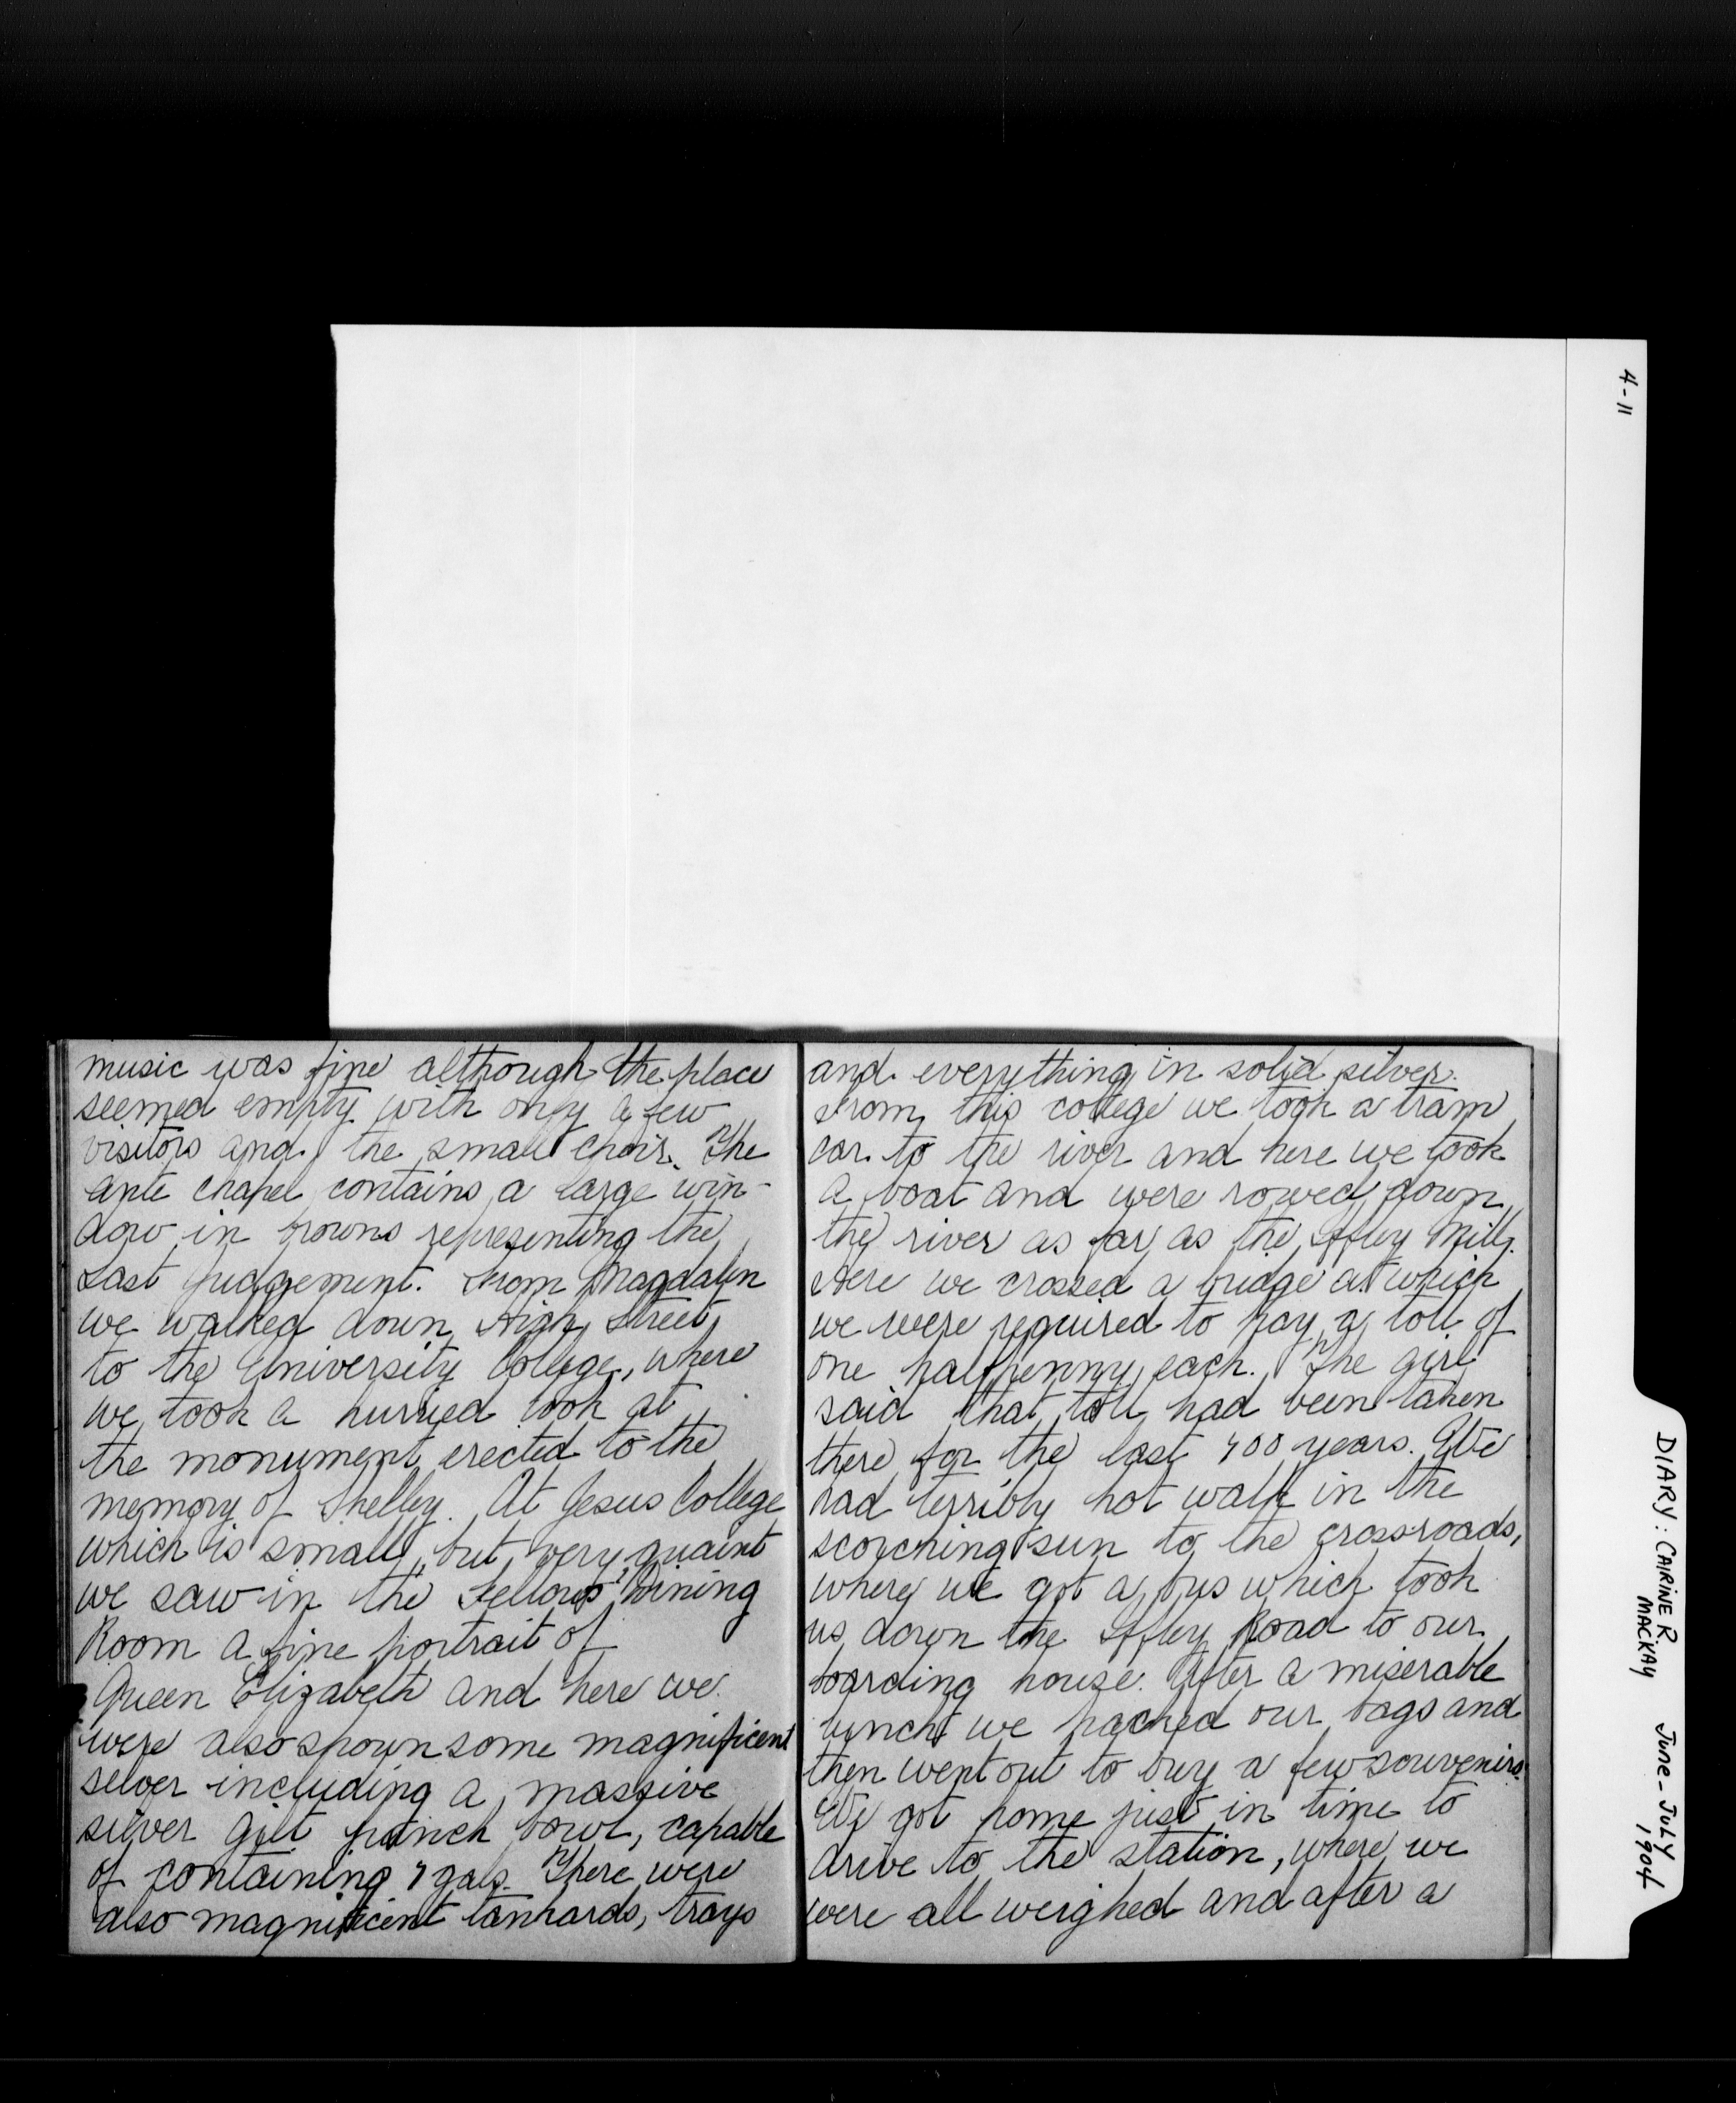 music was fine although the place
seemed empty with only a few
visitors and the small choir. The
ante chapel contains a large win-
dow in browns representing the
Last Judgement. From Magdalen
we walked down High Street
to the University College, where
we took a hurried look at
the monument erected to the
memory of Shelley. At Jesus College
which is small, but very quaint
we saw in the Fellows' Dining
Room a fine portrait of
Queen Elizabeth and here we
were also shown some magnificent
silver including a massive
silver gilt punch bowl, capable
of containing 9 gals. There were
also magnificent tankards, trays
and everything in solid silver.
From this college we took a tram
car to the river and here we took
a boat and were rowed down
the river as far as the Iffley Mill.
Here we crossed a bridge at which
we were required to pay a toll of
one halfpenny each. The girl
said that toll had been taken
there for the last 900 years. We
had terribly hot walk in the
scorching sun to the crossroads,
where we got a bus which took
us down the Iffley Road to our
boarding house. After a miserable
lunch we packed our bags and
then went out to buy a few souvenirs.
We got home just in time to
drive to the station, where we
were all weighed and after a
4-11
DIARY: CAIRINE R
MACKAY
JUNE-JULY
1904